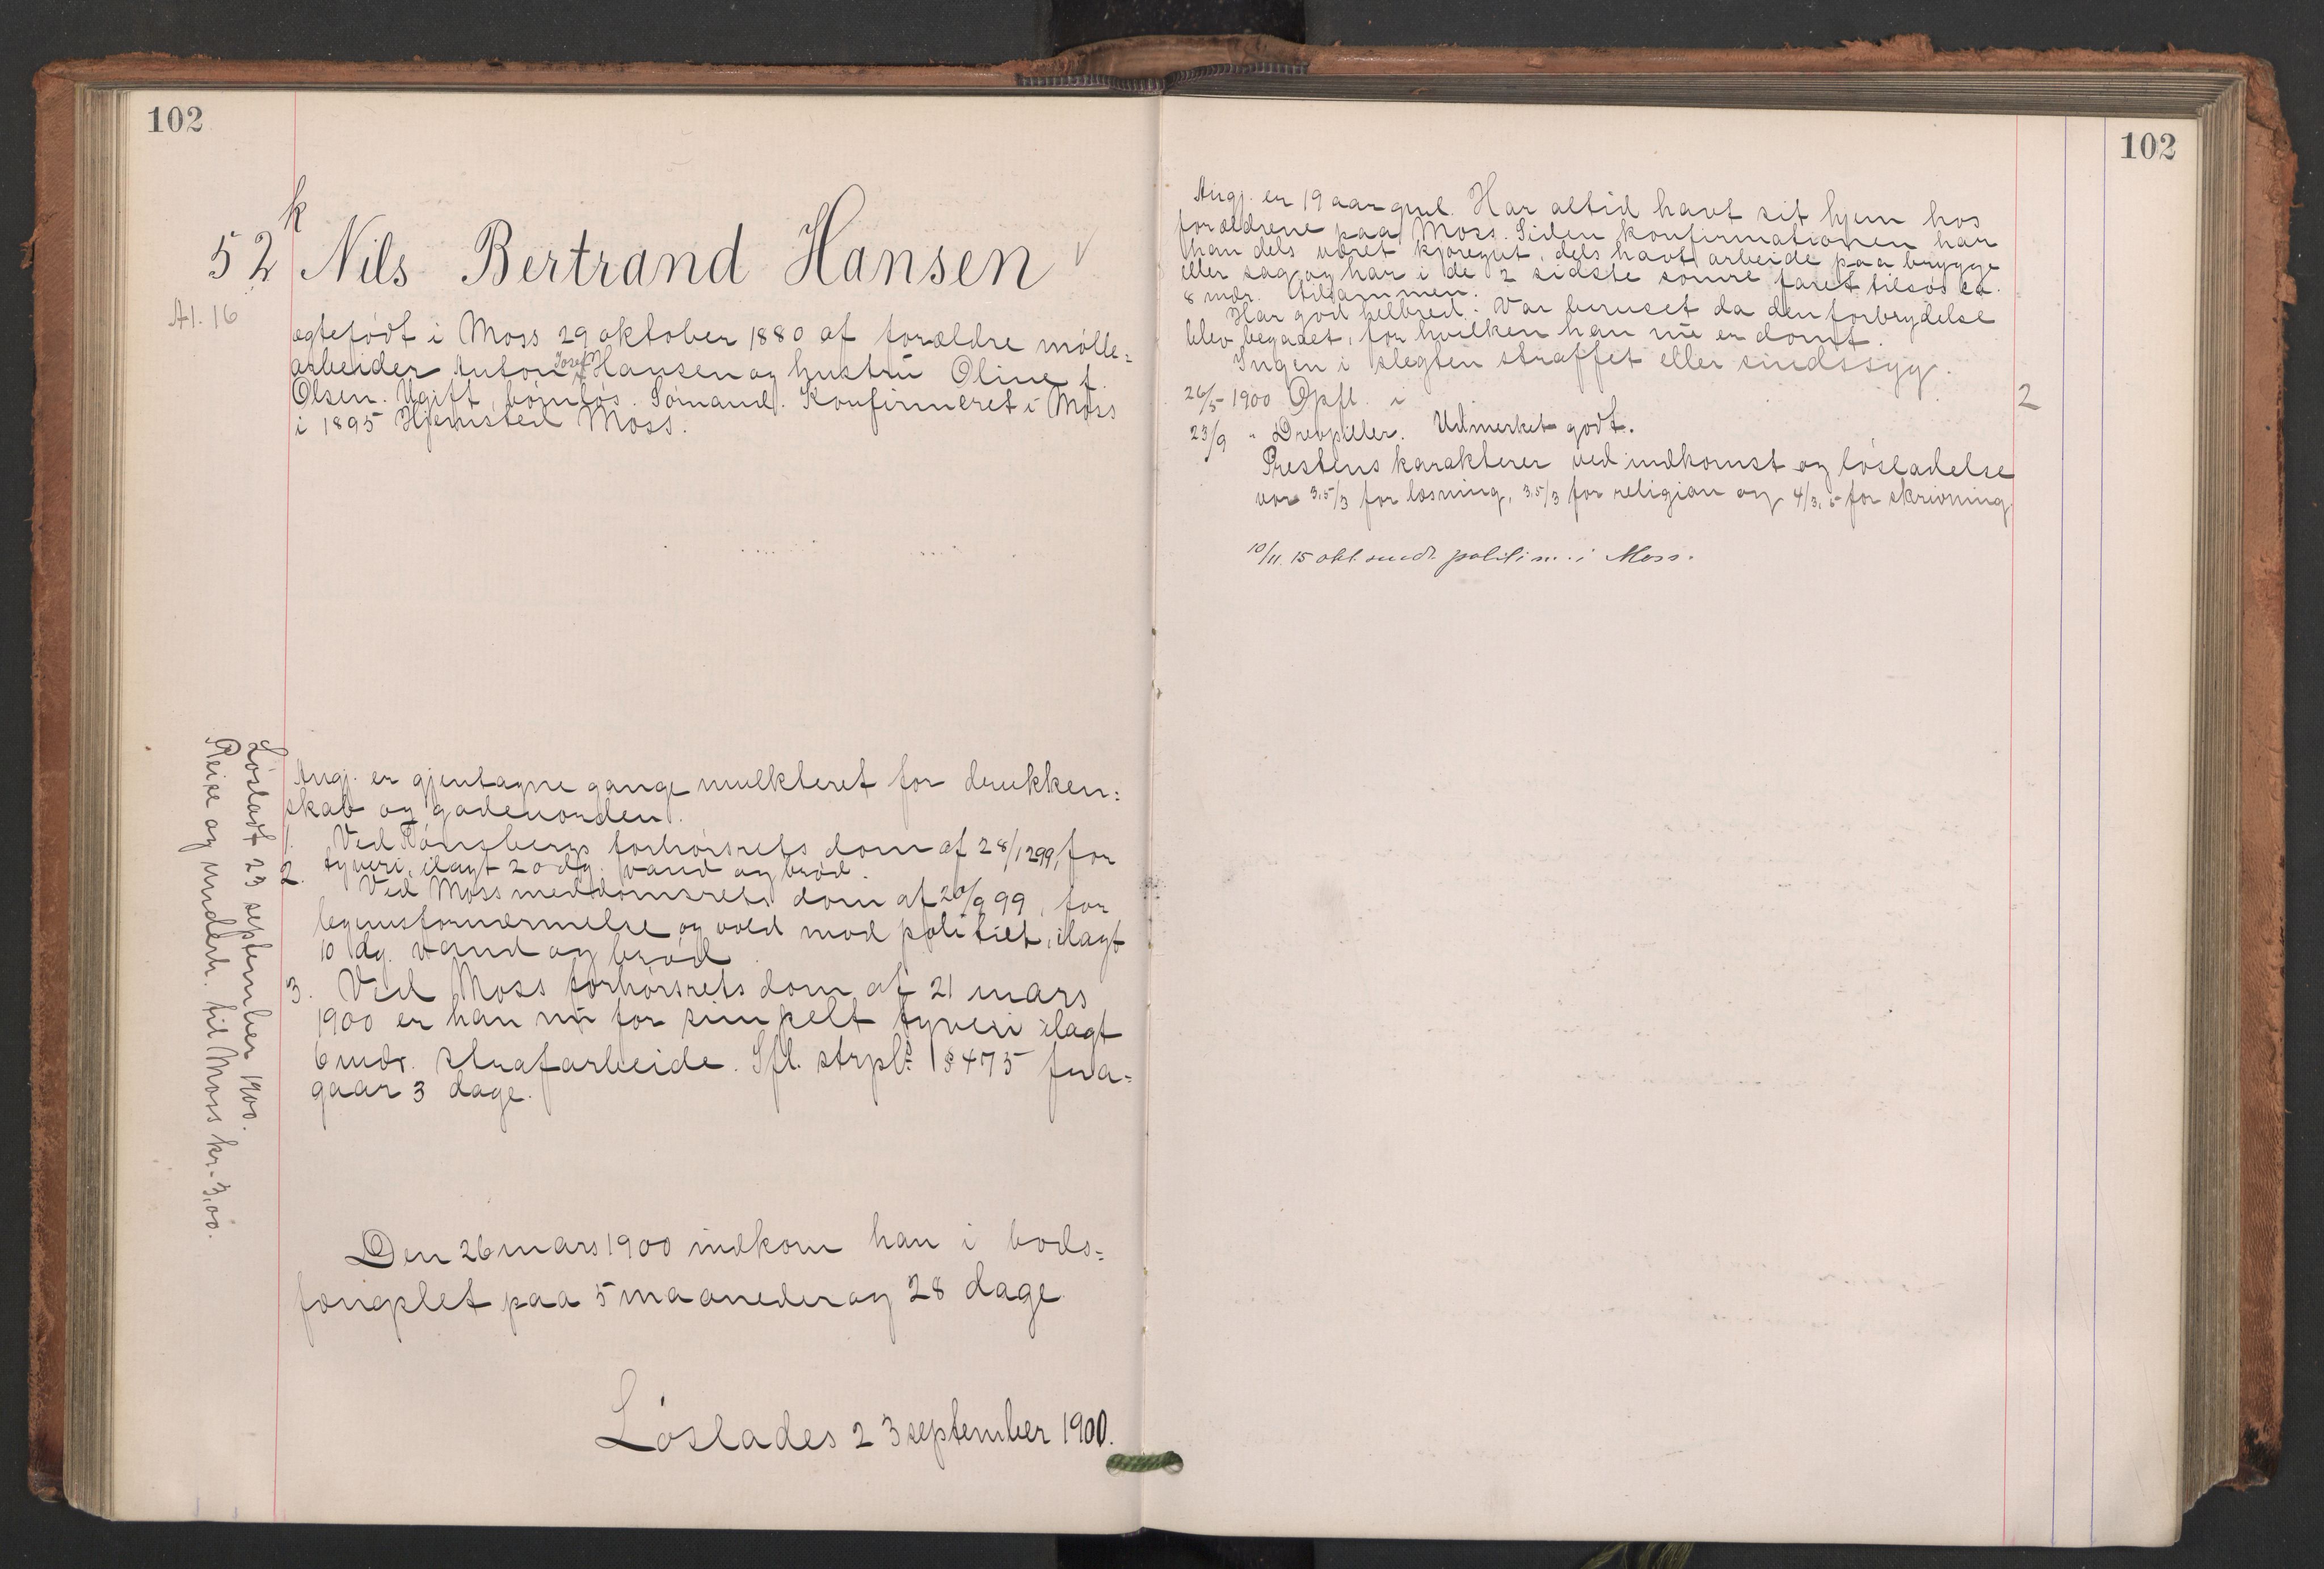 102
k
52 Nils Bertrand Hansen
A1. 16
ægtefødt i Moss 29 oktober 1880 af forældre mølle=
arbeider Anton Josef Hansen og hustru Oline f.
Olsen. Ugift, børnløs. Sømand. Konfirmeret i Moss
i 1895 Hjemsted Moss.
Angj. er gjentagne gange mulkteret for drukken=
skab og gadeuorden.
1. Ved Tønsbergs forhørsrets dom af 28/12 99, for
tyveri, ilagt 20 dg. vand og brød.
2. Ved Moss meddomsrets dom af 20/9 99, for
legemsfornærmelse og vold mod politiet, ilagt
10 dg. vand og brød.
3. Ved Moss forhørsrets dom af 21 mars
1900 er han nu for simpelt tyveri ilagt
6 mdr. strafarbeide. Ifl. strpl. § 475 fra=
gaar 3 dage.
Den 26 mars 1900 indkom han i bods=
fængslet paa 5 maaneder og 28 dage
Løslades 23 september 1900.
Løsladt 23 september 1900.
Reise og underh. til Moss kr. 3,00.
102
Angj. er 19 aar gml. Har altid havt sit hjem hos
forældrene paa Moss. Siden konfirmationen har
han dels været kjøregut, dels havt arbeide paa brygge
eller sag og har i de 2 sidste somre faret tilsøs ca.
8 mdr. tilsammen.
Har god helbred. Var beruset da den forbrydelse
blev begaaet, for hvilken han nu er dømt.
Ingen i slegten straffet eller sindssyg.
26/5 1900 Opfl. i 2
23/9 " Drevpiller. Udmerket godt.
Prestens karakterer ved indkomst og løsladelse
var 3,5/3 for læsning, 3,5/3 for religion og 4/3,5 for skrivning
10/11. 15 obl. sendt politim. i Moss.